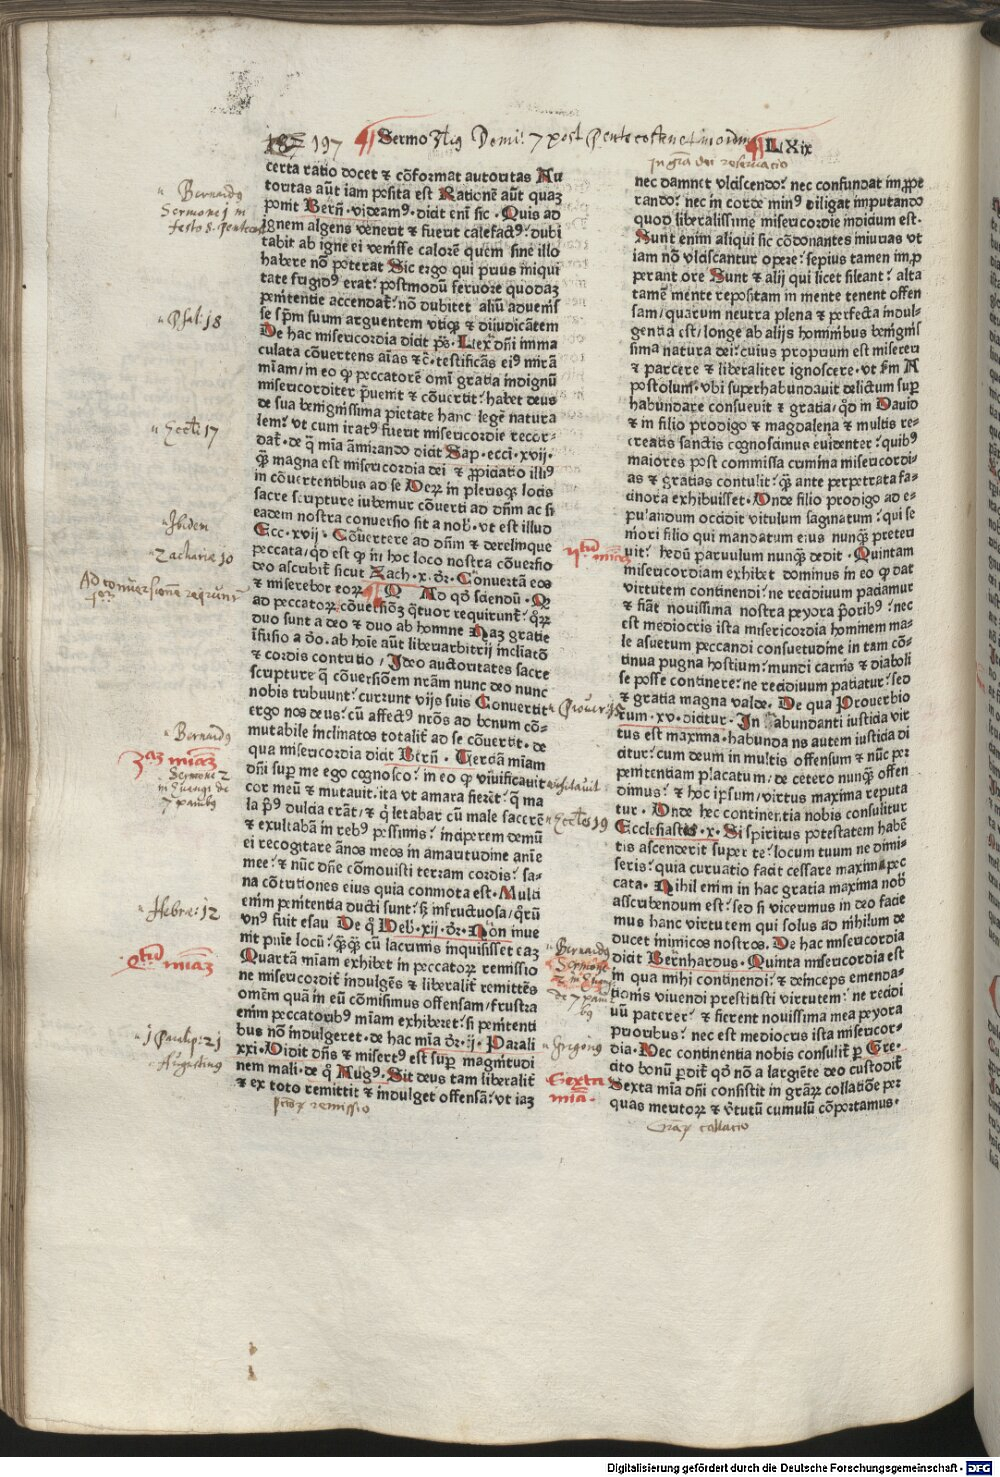 197 Sermo Domi: 7 post Pentecosten LXix
certa ratio docet ⁊ cōformat autoritas Au
toritas aūt iam posita est Rationē aūt quaz
ponit Berñ. videamꝰ. dicit eni sic. Quis ad
ignem algens venerit ⁊ fuerit calefactꝰ: dubi
tabit ab igne ei venisse calorē quem sine illo
habere nō poterat Sic ergo qui prius iniqui
tate frigidꝰ erat: postmodū feruore quodaz
penitentie accendat̄: nō dubitet aliū aduenis
se sp̄m suum arguentem vtiqꝫ ⁊ dijudicātem
De hac misericordia dicit pš. Lex dñi imma
culata cōuertens aīas ⁊ c̄. testificās eiꝰ mirā
mīam/in eo ꝙ peccatorē omi gratia indignū
misericorditer p̄uenit ⁊ cōuertit: habet deus
de sua benignissima pietate hanc legē natura
lem: vt cum iratꝰ fuerit misericordie recor-
dat̄. de q̄ mīa āmirando dicit Sap. ecci. xvij.
q̄ꝫ magna est misericordia dei ⁊ ꝓpiciatio illiꝰ
in cōuertentibus ad se Deꝝ in plerisqꝫ locis
sacre scripture iubemur cōuerti ad dñm ac si
eadem nostra conuersio sit a nob̄. vt est illud
Ecc. xvij. Cōuertere ad dñm ⁊ derelinque
peccata/qd̄ est ꝙ in hoc loco nostra cōuersio
deo ascribit̄ sicut Zach. x. dr̄. Conuertā eos
⁊ miserebor eoꝝ. Ad qd̄ sciendū. Qꝫ
ad peccatoꝝ cōuersiōꝫ q̄tuor requirunt̄: q̄rꝝ
duo sunt a deo ⁊ duo ab homine Naz gratie
īfusio a dō. ab hoīe aūt liberiarbitrij incliatō
⁊ cordis contritio/Ideo auctoritates sacre
scripture q̄ cōuersiōem nrām nunc deo nunc
nobis tribuunt: currunt vijs suis Conuertit
ergo nos deus: cū affectꝰ nrōs ad bonum cō-
mutabile inclinatos totalit̄ ad se cōuertit. de
qua misericordia dicit Berñ. Terciā mīam
dñi super me ego cognosco: in eo ꝙ viuificauit
cor meū ⁊ mutauit. ita vt amara fieret: q̄ ma
la pꝰ dulcia erāt/⁊ q̄ letabar cū male facerē
⁊ exultabā in rebꝰ pessimis: inciperem demū
ei recogitare ānos meos in amaritudine anīe
mee: ⁊ nūc dñe cōmouisti terram cordis: sa-
na cōtritiones eius quia conmota est. Multi
enim penitentia ducti sunt: sꝫ infructuosa/q̄rū
vnꝰ fuit esau De q̄ Heb̄. xij. dr̄. Non inue
nit pnīe locū: q̄ꝫq̄ꝫ cū lacrimis inquisisset eaꝫ
Quartā mīam exhibet in peccatoꝝ remissio
ne misericordit̄ indulgēs ⁊ liberalit̄ remittēs
omēm quā in eū cōmisimus offensam/frustra
enim peccatoribꝰ mīam exhiberet: si penitenti
bus nō indulgeret. de hac mīa dr̄. ij. Parali
xxi. Vidit dñs ⁊ misertꝰ est super magnitudi
nem mali. de q̄ Augꝰ. Sit deus tam liberalit̄
⁊ ex toto remittit ⁊ indulget offensā: vt iaz
nec damnet vlciscendo: nec confundat imꝓpe
rando: nec in corde minꝰ diligat imputando
quod liberalissime misericordie indicium est.
Sunt enim aliqui sic cōdonantes iniurias vt
iam nō vlciscantur opere: sepius tamen imp
perant ore Sunt ⁊ alij qui licet sileant: alta
tamē mente repositam in mente tenent offen
sam/quarum neutra plena ⁊ perfecta indul-
gentia est/longe ab alijs hominibus benignis
sima natura dei: cuius proprium est misereri
⁊ parcere ⁊ liberaliter ignoscere. vt s̄m A
postolum. vbi superhabundauit delictum supꝫ
habundare consueuit ⁊ gratia/qd̄ in Dauid
⁊ in filio prodigo ⁊ magdalena ⁊ multis re-
creatis sanctis cognoscimus euidenter: quibꝰ
maiores post commissa crimina misericordi-
as ⁊ gratias contulit: q̄ꝫ ante perpetrata fa-
cinora exhibuisset. Unde filio prodigo ad e-
pulandum occidit vitulum saginatum: qui se
niori filio qui mandatum eius nunqꝫ preteri
uit: hedū paruulum nunqꝫ dedit. Quintam
misericordiam exhibet dominus in eo ꝙ dat
virtutem continendi: ne recidiuum paciamur
⁊ fiāt nouissima nostra peyora p̄oribꝰ: nec
est mediocris ista misericordia hominem ma-
le assuetum peccandi consuetudine in tam cō-
tinua pugna hostium: mundi carnis ⁊ diaboli
se posse continere: ne recidiuum patiatur: sed
⁊ gratia magna valde. De qua Prouerbio
rum. xv. dicitur. In abundanti iusticia vir
tus est maxima. habunda ns autem iusticia di
citur: cum deum in multis offensum ⁊ nūc per
penitentiam placatum/de cetero nunqꝫ offen
dimus: ⁊ hoc ipsum/virtus maxima reputa
tur. Unde hec continentia nobis consulitur
Ecclesiastes. x. Si spiritus potestatem habē
tis ascenderit super te: locum tuum ne dimi-
seris: quia curuatio facit cessare maxima pec
cata. Nihil enim in hac gratia maxima nob̄
asscribendum est: sed si vicerimus in deo facie
mus hanc virtutem qui solus ad nihilum de
ducet inimicos nostros. De hac misericordia
dicit Bernhardus. Quinta misericordia est
in qua mihi continendi: ⁊ deinceps emenda-
tionis viuendi prestitisti virtutem: ne recidi
uū paterer: ⁊ fierent nouissima mea peyora
prioribus: nec est mediocris ista misericor-
dia. Nec continentia nobis consulit̄ p̄ Gre-
cito bonū p̄dit̄ qd̄ nō a largiente deo custodit̄
Sexta mīa dñi consistit in grāꝝ collatiōe per
quas meritoꝝ ⁊ v̄tutū cumulū cōportamus.
Bernardꝰ
Sermone j in
festo S. Pentecost
Psal: 18
Eccli: 17
Ibidem
Zachariæ 10
Ad conuersionē requirunt̄
Bernardꝰ
3ꜩ mīaꝫ
Sermone 2
7 panibꝫ
Hebræ: 12
4tā mīaꝫ
Augustinꝰ
remissio
Prouer: 15
visitauit
Eccles 19
Bernardꝰ
Sermone
de 7 pani
bꝫ
Gregoriꝰ
Sexta
mīa.
collatio
Digitalisierung gefördert durch die Deutsche Forschungsgemeinschaft - DFG